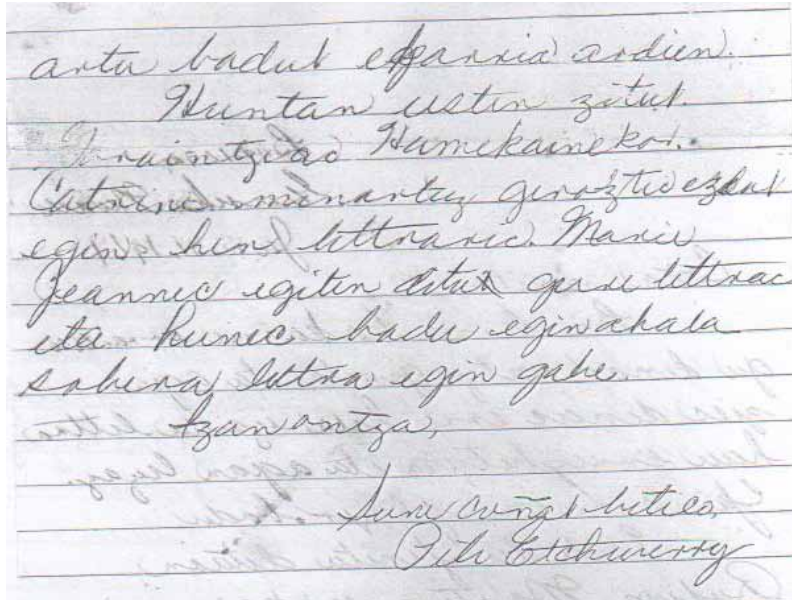 artu badut esparxia ardien.
Huntan usten zitut.
Goraintziac Hamekainekot.
Catrine minartuz geroztic ezdut
egin hen lettraric. Marie
Jeannec egiten ditut gure lettrac
eta hunec badu eginahala
sobera lettra egin gabe.
Izan ontza,
Sure coñat betico,
Pete Etcheverry